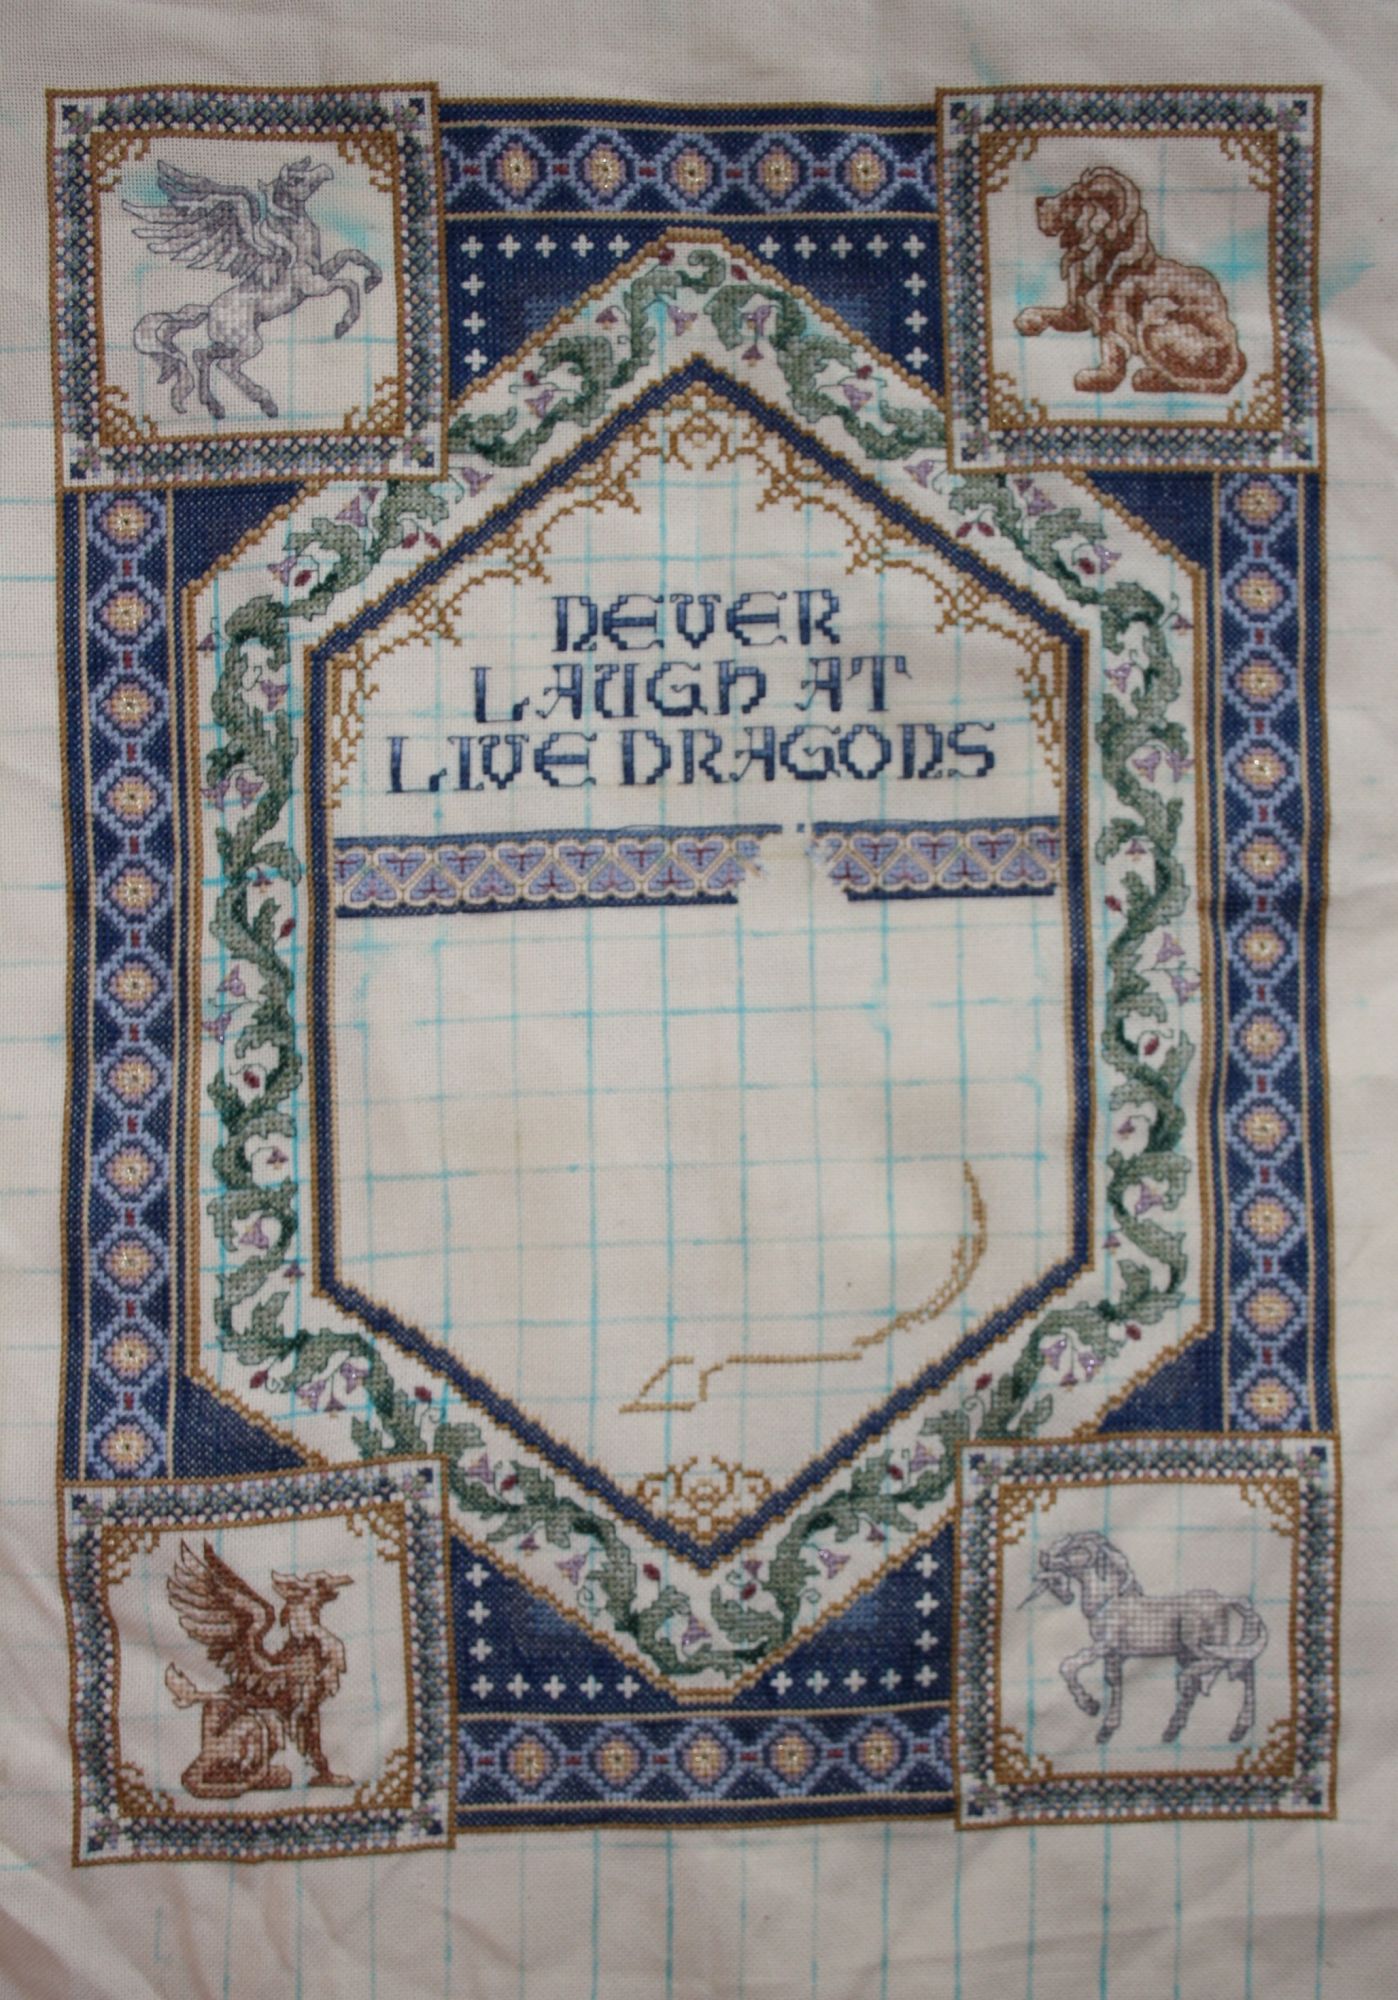 NEVER
LAUGH AT
LIVE DRAGONS